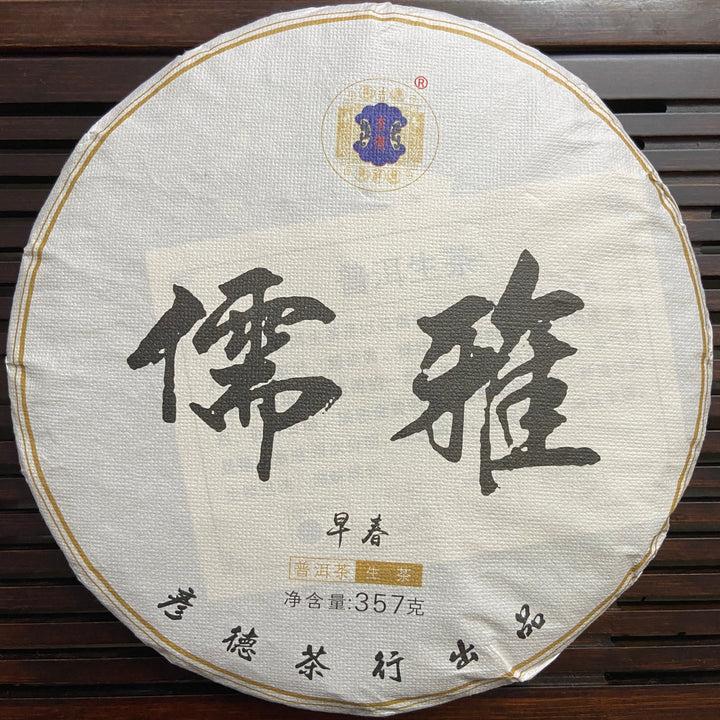 ®
儒雅
早春
普洱茶 生茶
净含量:357克
彦德茶行出品